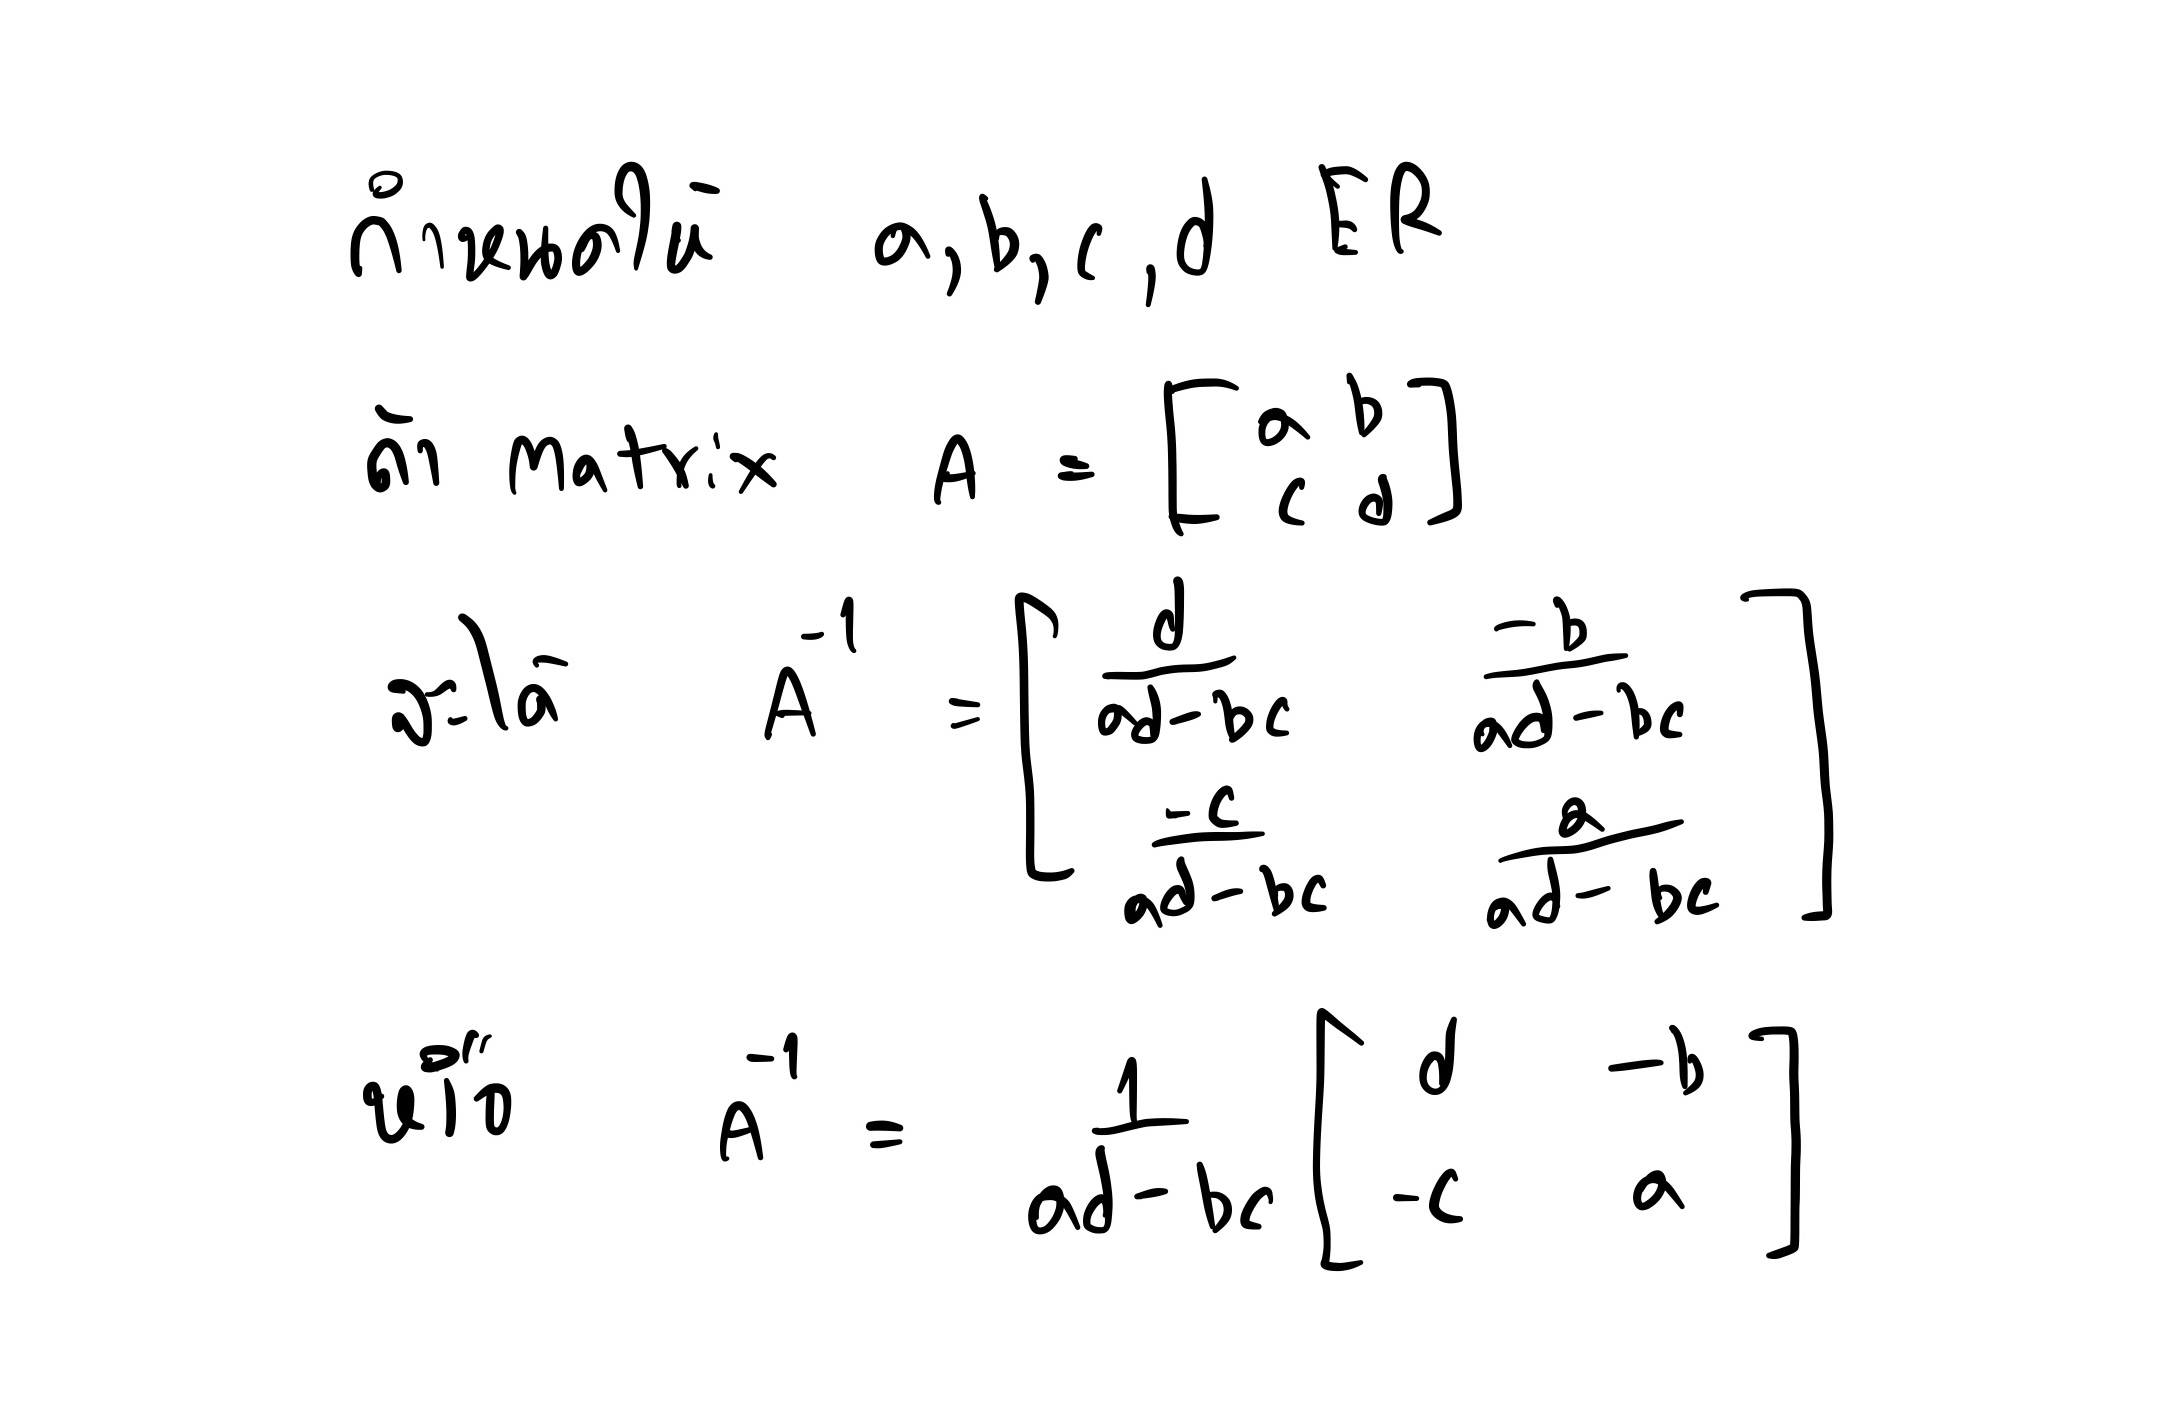 กำหนดให้ a, b, c, d ∈ R
ถ้า Matrix A = [a b; c d]
จะได้ A^-1 = [d/(ad-bc) -b/(ad-bc); -c/(ad-bc) a/(ad-bc)]
หรือ A^-1 = 1/(ad-bc) [d -b; -c a]